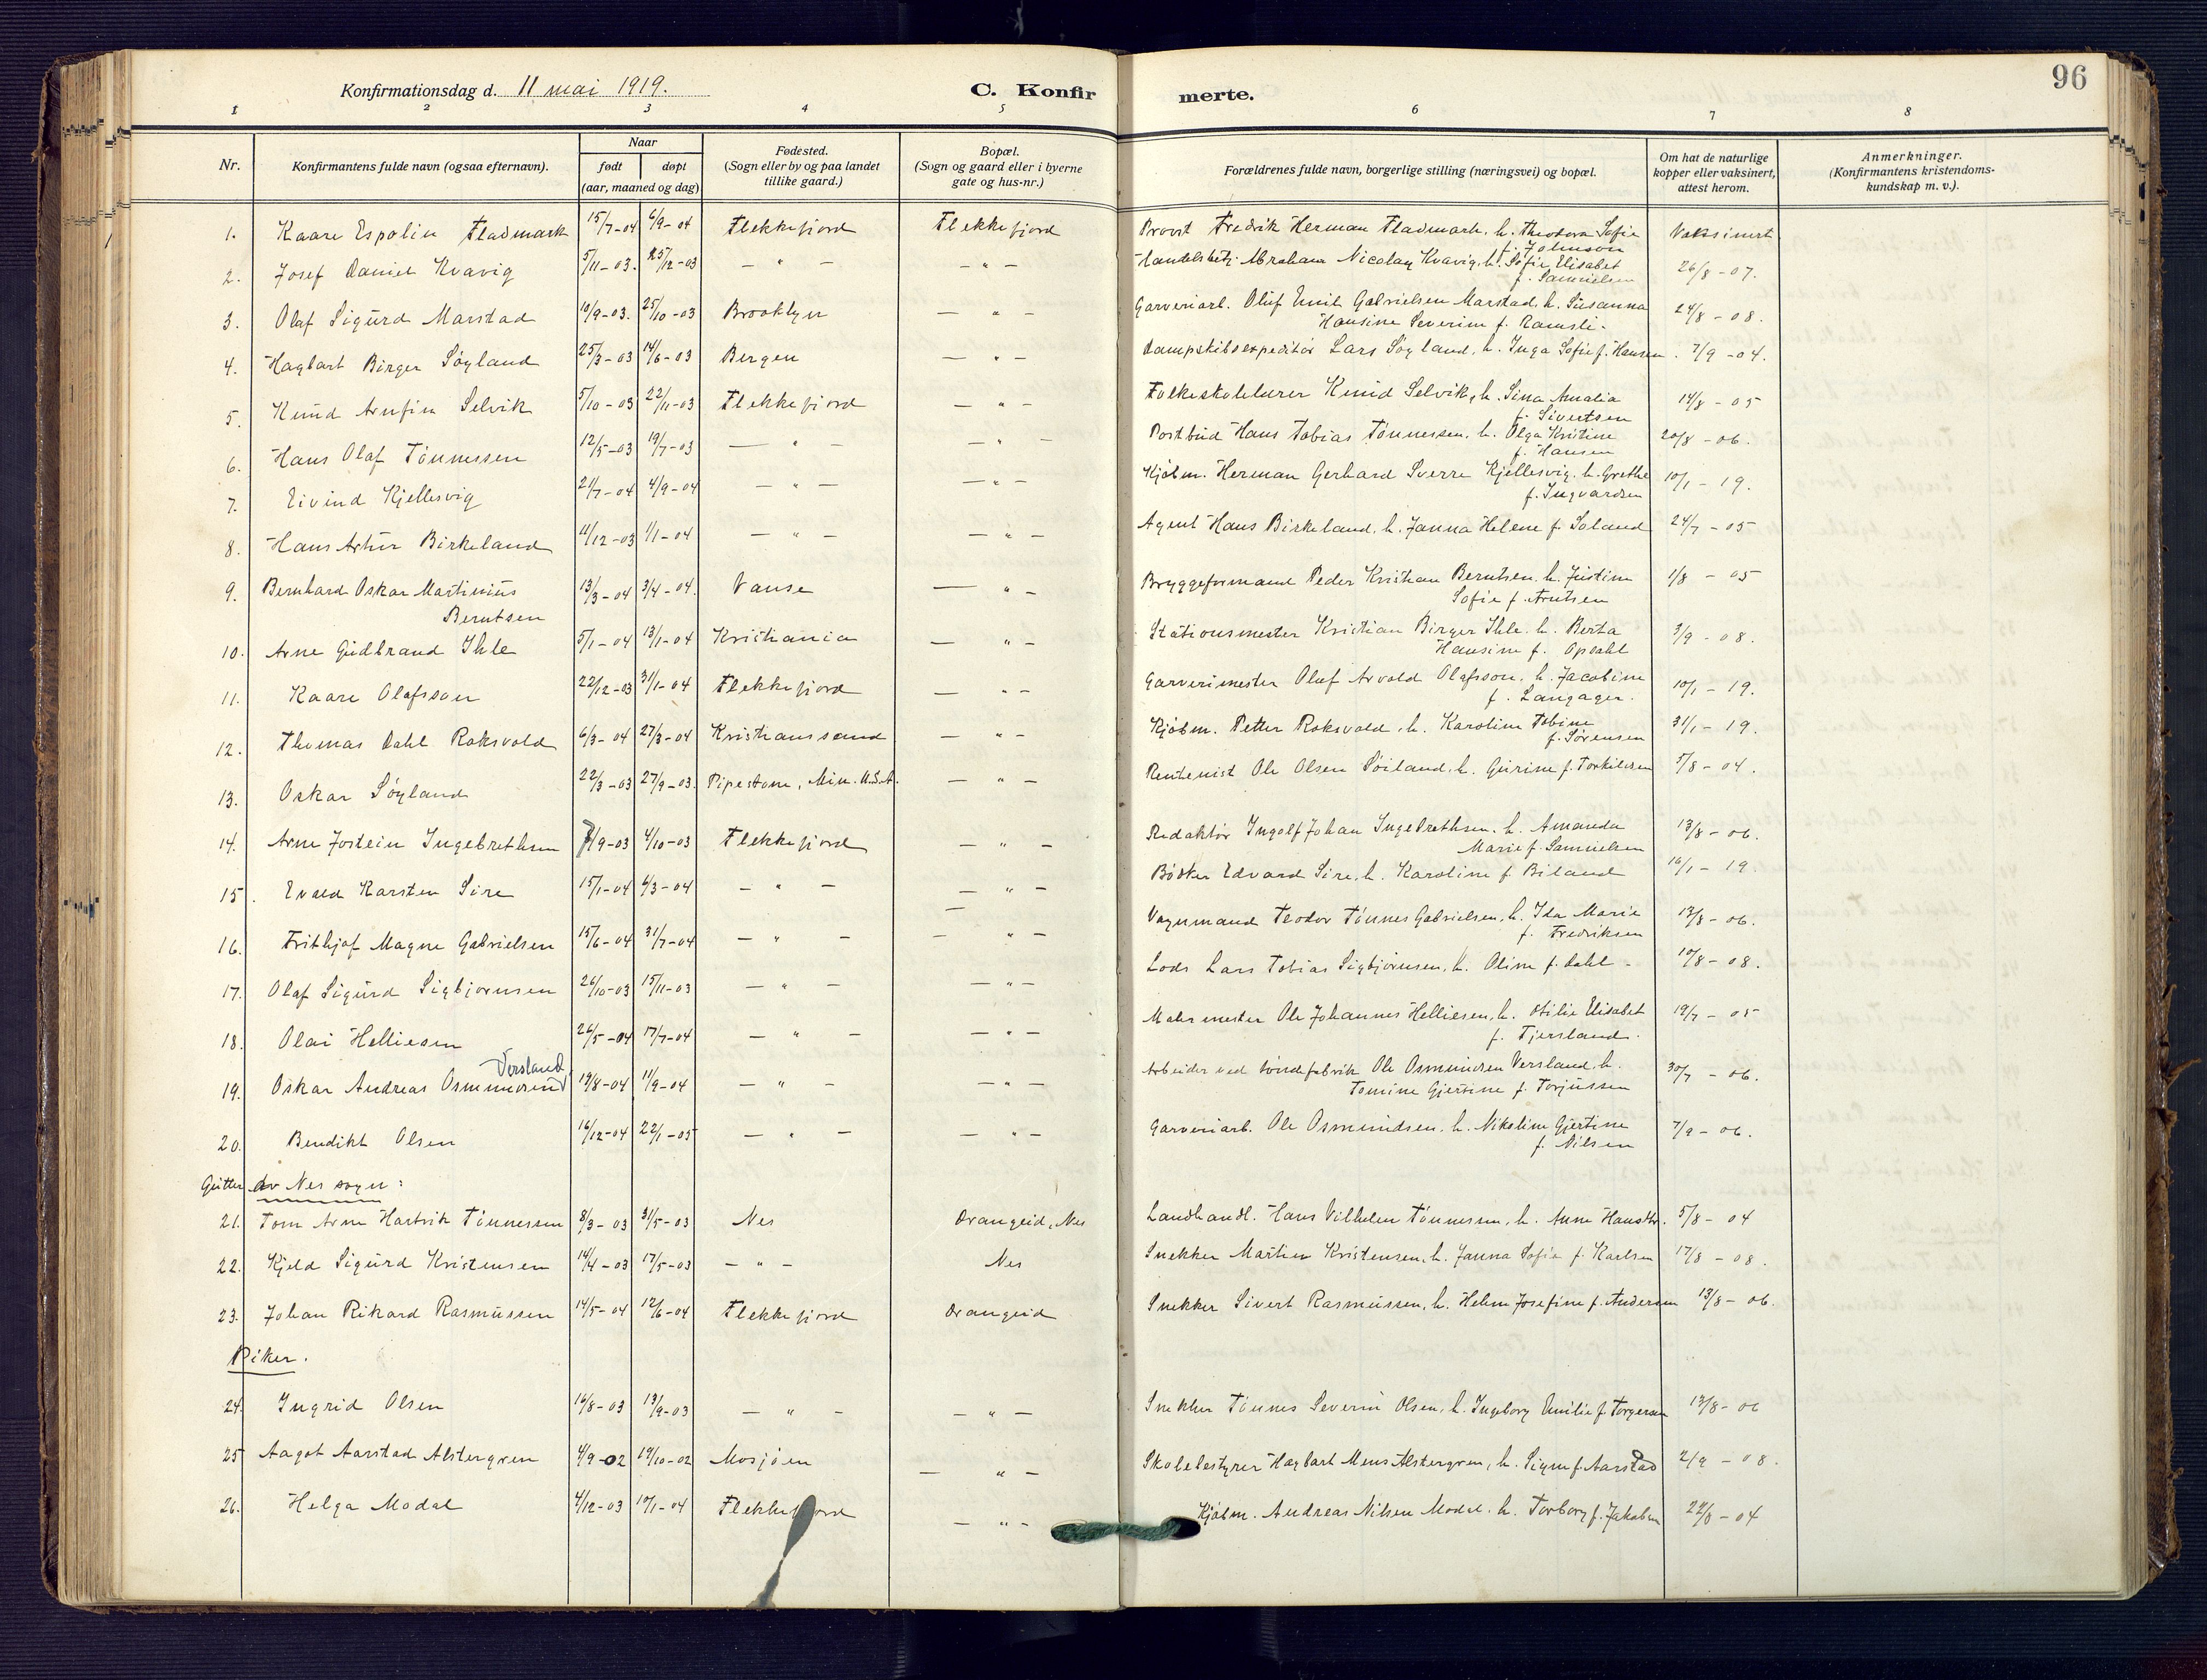 96
Konfirmationsdag d. 11 mai 1919. C. Konfir merte.
1 2 3 4 5 6 7 8
Nr. Konfirmantens fulde navn (ogsaa efternavn). Naar født døpt (aar, maaned og dag) Fødested. (Sogn eller by og paa landet tillike gaard.) Bopæl. (Sogn og gaard eller i byerne gate og hus-nr.) Forældrenes fulde navn, borgerlige stilling (næringsvei) og bopæl. Om hat de naturlige kopper eller vaksinert, attest herom. Anmerkninger. (Konfirmantens kristendoms- kundskap m. v.).
1. Kaare Espolin Fladmark 15/7-04 6/9-04 Flekkefjord Flekkefjord Provst Fredrik Herman Fladmark, h. Theodora Sofie Vaksinert.
f. Johnson
2. Josef Daniel Kvavig 5/11-03. 25/12-03 — " — — " — Handelsbetj. Abraham Nicolay Kvavig, h. Sofie Elisabet 26/8-07.
f. Samuelsen
3. Olaf Sigurd Marstad 10/9-03. 25/10-03 Brooklyn — " — Garveriarb. Oluf Emil Gabrielsen Marstad, h. Susanna 24/8-08.
Hansine Severine f. Ramsli.
4. Hagbart Birger Søyland 25/3-03 14/6-03 Bergen — " — Dampskibsexpeditør Lars Søyland, h. Inga Sofie f. Hansen. 7/9-04.
5. Knud Arnfin Selvik 5/10-03 22/11-03 Flekkefjord — " — Folkeskolelærer Knud Selvik, h. Sina Amalia 14/8-05
f. Sivertsen
6. Hans Olaf Tønnessen 12/5-03 19/7-03 — " — — " — Postbud Hans Tobias Tønnessen, h. Olga Kristine 20/8-06.
f. Hansen
7. Eivind Kjellesvig 21/7-04 4/9-04 — " — — " — Kjøbm. Herman Gerhard Sverre Kjellesvig, h. Grethe 10/1-19.
f. Ingvardsen
8. Hans Artur Birkeland 11/12-03 1/1-04 — " — — " — Agent Hans Birkeland, h. Janna Helene f. Soland 24/7-05
9. Bernhard Oskar Martinius 13/3-04 3/4-04. Vanse — " — Bryggeformand Peder Kristian Berntsen, h. Justine 1/8-05
Berntsen Sofie f. Arntsen
10. Arne Gudbrand Ihle 5/1-04 13/1-04 Kristiania — " — Stationsmester Kristian Birger Ihle, h. Berta 3/9-08.
Hansine f. Opdahl
11. Kaare Olafsson 22/12-03 31/1-04 Flekkefjord — " — Garverimester Olaf Arvold Olafsson, h. Jacobine 10/1-19.
f. Langager.
12. Thomas Dahl Roksvold 6/3-04 27/3-04 Kristianssand — " — Kjøbm. Petter Roksvold, h. Karoline Tobine 31/1-19.
f. Sørensen
13. Oskar Søyland 22/3-03 27/9-03. Pipestone, Min. U.S.A. — " — Rentenist Ole Olsen Søiland, h. Gurine f. Torkildsen 5/8-04.
14. Arne Jostein Ingebrethsen 7/9-03 4/10-03 Flekkefjord — " — Redaktør Ingolf Johan Ingebrethsen, h. Amanda 13/8-06.
Marie f. Samuelsen
15. Evald Karsten Sire 15/1-04 6/3-04 — " — — " — Bødker Edvard Sire, h. Karoline f. Biland 16/1-19.
16. Frithjof Magne Gabrielsen 15/6-04 31/7-04 — " — — " — Vognmand Teodor Tønnes Gabrielsen, h. Ida Marie 13/8-06.
f. Fredriksen
17. Olaf Sigurd Sigbjørnsen 26/10-03 15/11-03 — " — — " — Lods Lars Tobias Sigbjørnsen, h. Oline f. Dahl - 10/8-08.
18. Olai Helliesen 26/5-04 17/7-04 — " — — " — Malermester Ole Johannes Helliesen, h. Otilie Elisabet 19/7-05
f. Tjersland.
Versland
19. Oskar Andreas Osmundsen 19/8-04 11/9-04 — " — — " — Arbeider ved tøndefabrik Ole Osmundsen Versland, h. 30/7-06.
Tomine Gjertine f. Torjussen
20. Bendikt Olsen 16/12-04 22/1-05 — " — — " — Garveriarb. Ole Osmundsen, h. Nikoline Gjertine 7/9-06.
f. Nilsen
Gutter av Nes sogn:
21. Tom Arne Hartvik Tønnessen 8/3-03 31/5-03 Nes Drangeid, Nes Landhandl. Hans Vilhelm Tønnessen, h. Anne Hansdtr. 5/8-04
22. Kjeld Sigurd Kristensen 14/4-03 17/5-03 — " — Nes Snekker Martin Kristensen, h. Janna Sofie f. Karlsen 17/8-08.
23. Johan Rikard Rasmussen 14/5-04 12/6-04 Flekkefjord Drangeid Snekker Sivert Rasmussen, h. Helene Josefine f. Andersen 13/8-06.
Piker.
24. Ingrid Olsen 16/8-03 13/9-03 — " — — " — Snekker Tønnes Severin Olsen, h. Ingeborg Emilie f. Torgersen 13/8-06
25 Aagot Aarstad Alstergren 4/9-02 19/10-02 Mosjøen — " — Skolebestyrer Hagbart Mens Alstergren, h. Signe f. Aarstad 2/9-08.
26. Helga Modal 4/12-03 10/1-04 Flekkefjord — " — Kjøbm. Andreas Nilsen Modal, h. Torborg f. Jakobsen 22/8-04